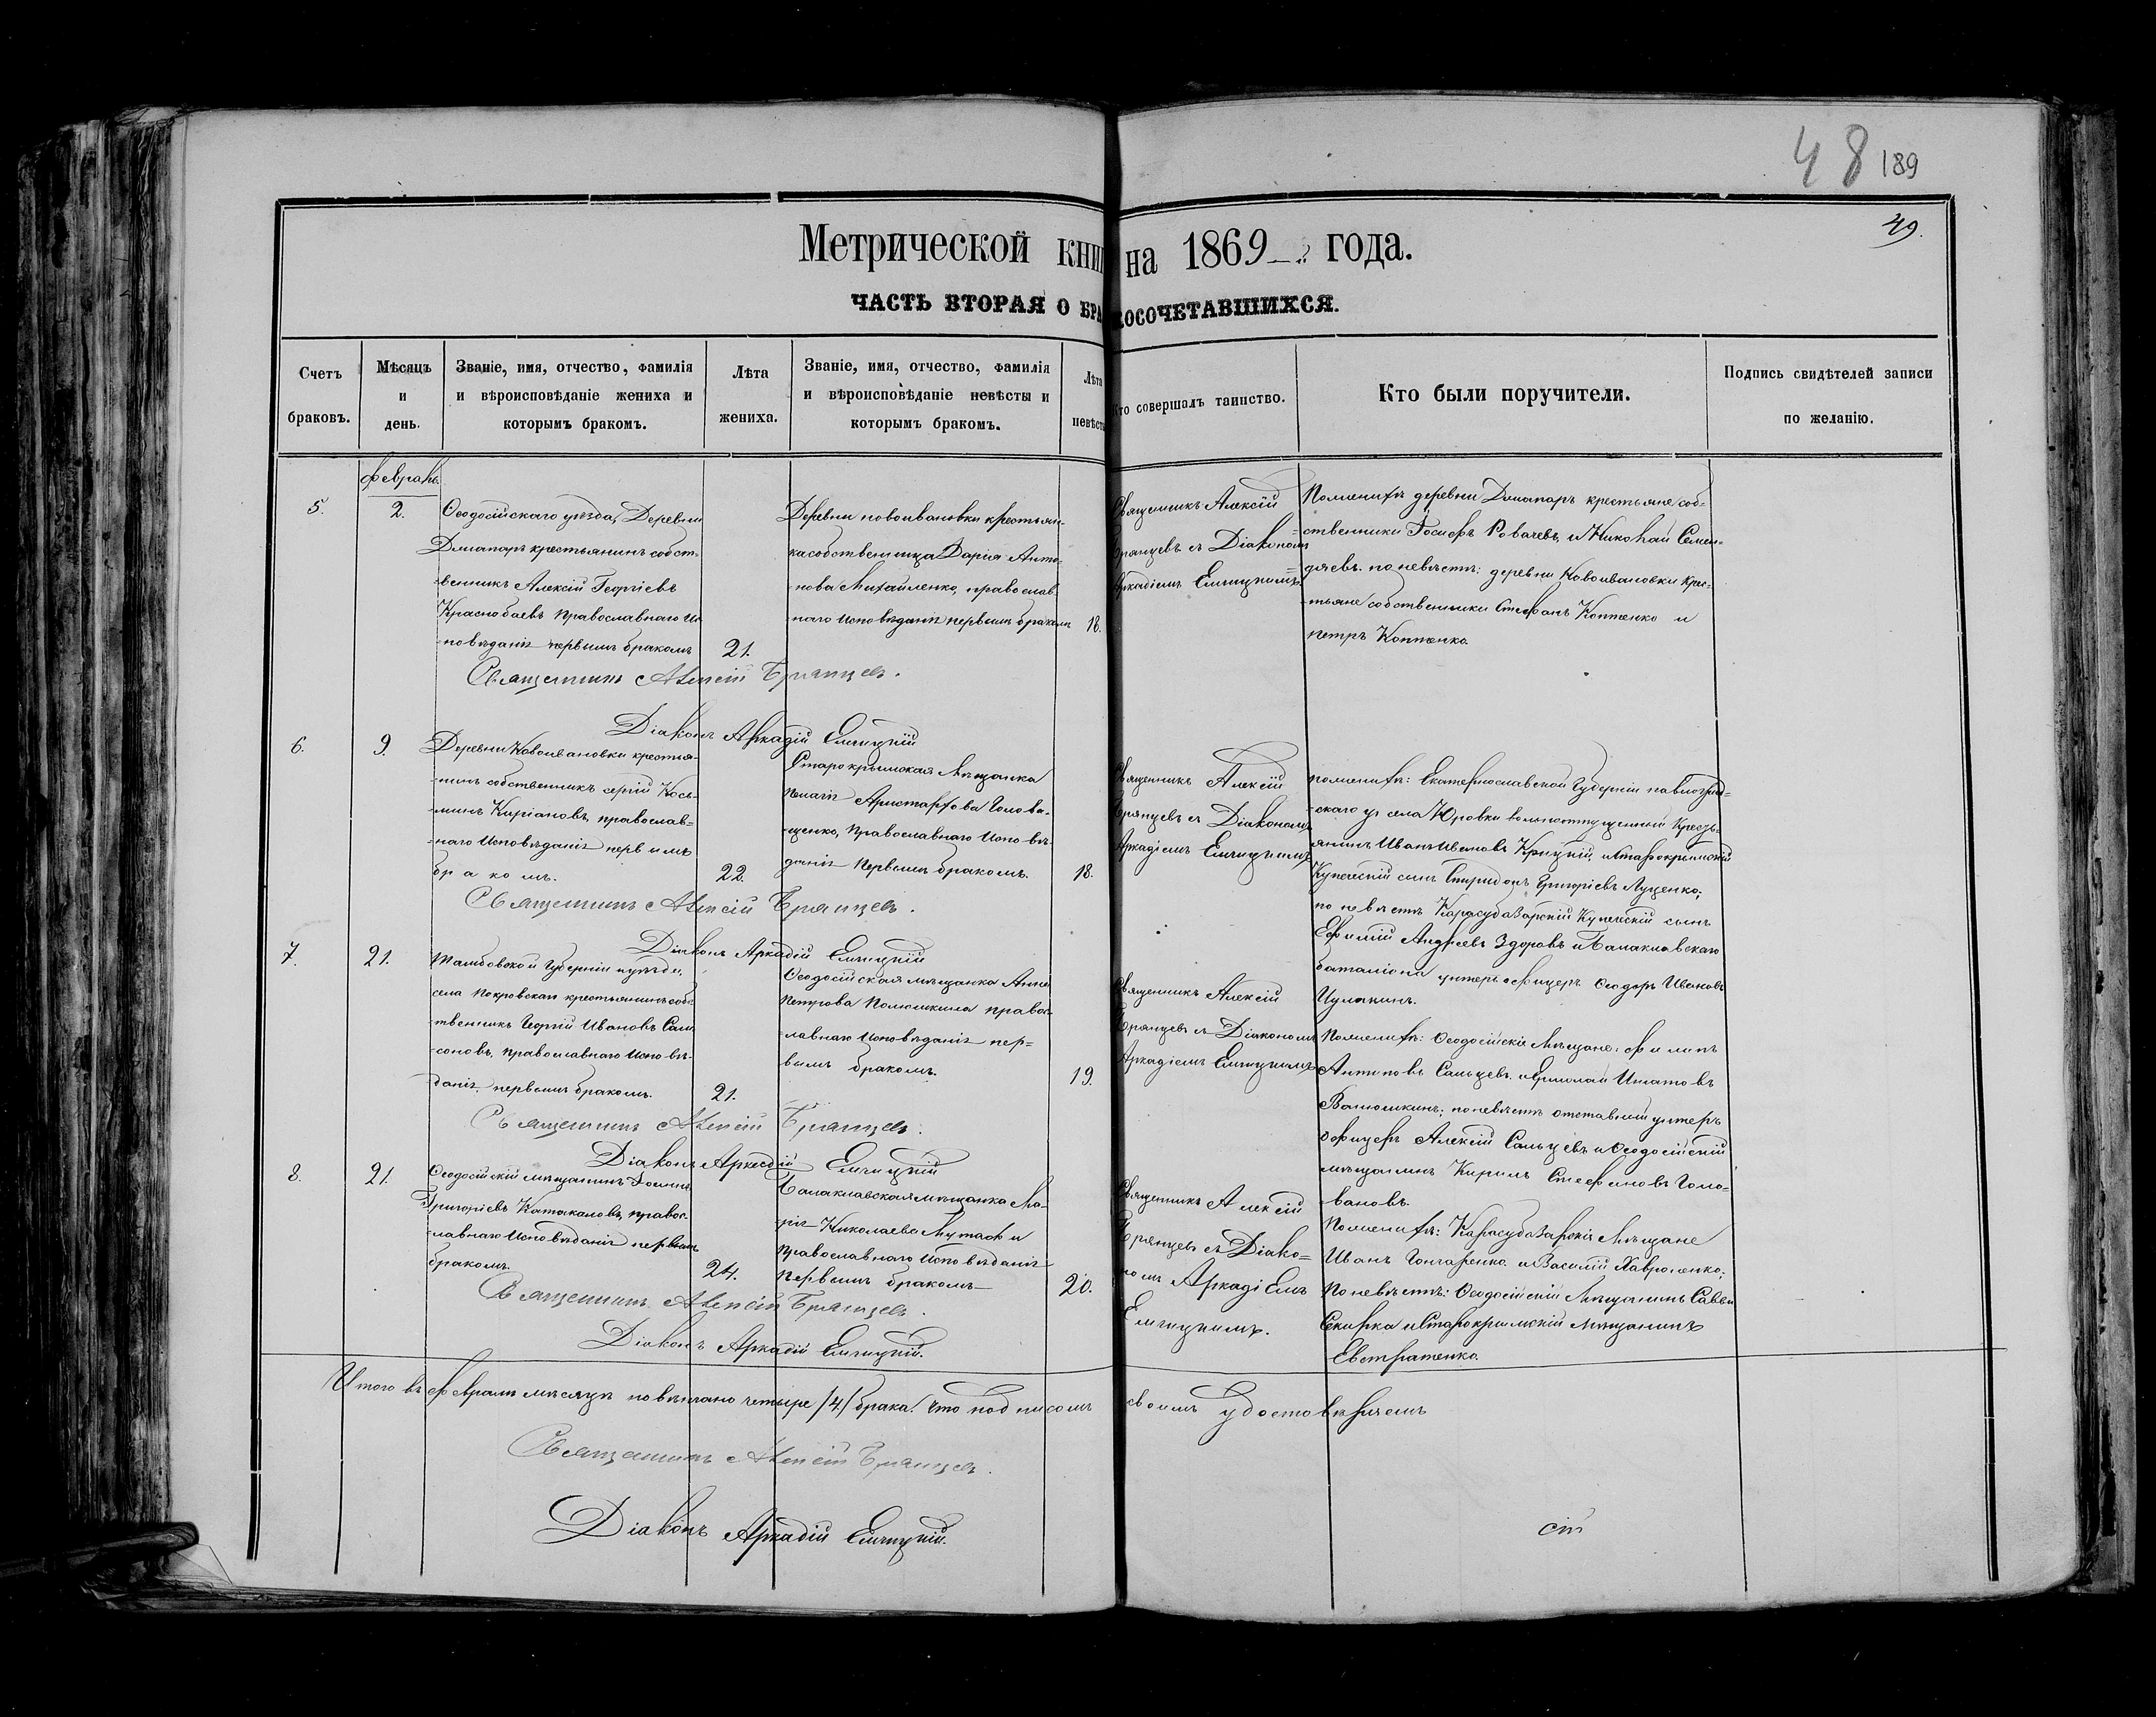 48 189
49.
Метрической кни на 1869 года.
ЧАСТЬ ВТОРАЯ О БРАКОСОЧЕТАВШИХСЯ.
Счетъ браковъ.
Мѣсяцъ и день.
Званіе, имя, отчество, фамилія и вѣроисповѣданіе жениха и которымъ бракомъ.
Лѣта жениха.
Званіе, имя, отчество, фамилія и вѣроисповѣданіе невѣсты и которымъ бракомъ.
Лѣта невѣсты
Кто совершалъ таинство.
Кто были поручители.
Подпись свидѣтелей записи по желанію.
Февраль
5.
2.
Ѳеодосійскаго уѣзда, Деревни
крестьянинъ собст-
-венникъ Алексій Георгіевъ
Краснобаевъ Православнаго Ис
-повѣданія первымъ бракомъ
21.
Деревни Новоивановки крестьян-
ка собственница Дарія Анто-
-нова Михайленко, православ-
наго исповѣданія первымъ бракомъ
18.
Священникъ Алексій
Брянцевъ съ Діакономъ
Аркадіемъ Емчицкимъ
По женихѣ деревни крестьяне соб-
-ственники Іосифъ и Николай Семен-
дяевъ. по невѣстѣ: деревни Новоивановки крес-
-тьяне собственники Стефанъ Коптенко и
петръ Коптенко
Священникъ Алексій Брянцевъ.
Діаконъ Аркадій Емчицкій
6.
9.
Деревни Новоивановки крестья-
-нинъ собственникъ сергій Кось-
-минъ Киріановъ, православ-
-наго Исповѣданія первымъ
бракомъ.
22.
Старокрымская Мѣщанка
Пелагія Аристархова Голова-
-щенко, Православнаго Исповѣ-
даніе Первымъ бракомъ.
18.
Священникъ Алексій
Брянцевъ съ Діакономъ
Аркадіемъ Емчицкимъ
по женихѣ: Екатеринославской Губерніи павлоград-
-скаго уѣ села Юровки вольноотпущенный Кресть-
янинъ Иванъ Ивановъ Крицкій, и Старокрымскій
Купеческій сынъ Спиридонъ Григоріевъ Луценко;
по невѣстѣ Карасубазарскій Купеческій сынъ
Ефимій Андреевъ Здоровъ и Балаклавскаго
баталіона унтеръ офицеръ Ѳеодоръ Ивановъ
Священникъ Алексій Брянцевъ.
Діаконъ Аркадій Емчицкій
7.
21.
Тамбовской Губерніи и уѣзда,
села Покровскаго крестьянинъ соб-
-ственникъ Георгій Ивановъ Сам
-соновъ, православнаго Исповѣ-
даніе, первымъ бракомъ.
21.
Ѳеодосійская мѣщанка Анна
Петрова Полюшкина правос-
-лавнаго Исповѣданія пер-
вымъ бракомъ.
19.
Священникъ Алексій
Брянцевъ съ Діакономъ
Аркадіемъ Емчицкимъ
По женихѣ: Ѳеодосійскіе Мѣщане: Филипъ
Антиповъ Сальцевъ. и Ермолай Игнатовъ
Ванюшкинъ; по невѣстѣ отставный унтеръ
офицеръ Алексій Сальцевъ и Ѳеодосійскій
мѣщанинъ Кирилъ Стефановъ Голо-
вановъ.
Священникъ Алексій Брянцевъ.
Діаконъ Аркадій Емчицкій
8.
21.
Ѳеодосійскій мѣщанинъ Іоаннъ
Григоріевъ Катакаловъ, правос-
-лавнаго Исповѣданія первымъ
бракомъ.
24.
Балаклавская мѣщанка Ма-
рія Николаева Мутафи
Православнаго Исповѣданія
Первымъ бракомъ
20.
Священникъ Алексій
Брянцевъ съ Діако-
номъ Аркадіемъ
Емчицкимъ.
По женихѣ: Карасубазарскіе Мѣщане
Иванъ Гончаренко и Василій Хавроненко;
По невѣстѣ: Ѳеодосійскій Мѣщанинъ Савва
Скирка и Старокрымскій мѣщанинъ
Евстратенко.
Священникъ Алексій Брянцевъ.
Діаконъ Аркадій Емчицкій.
Итого въ Февралѣ мѣсяцѣ повѣнчано четыре /4/ брака. Что подписомъ своимъ удостовѣряемъ
Священникъ Алексій Брянцевъ.
Діаконъ Аркадій Емчицкій.